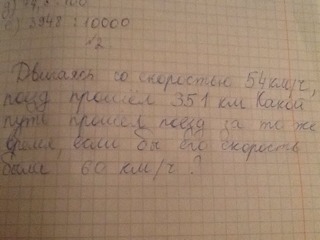 е) 3948 : 10000
√2
Двигаясь со скоростью 54 км/ч,
поезд прошёл 351 км. Какой
путь прошёл поезд за то же
время, если бы его скорость
была 60 км/ч?